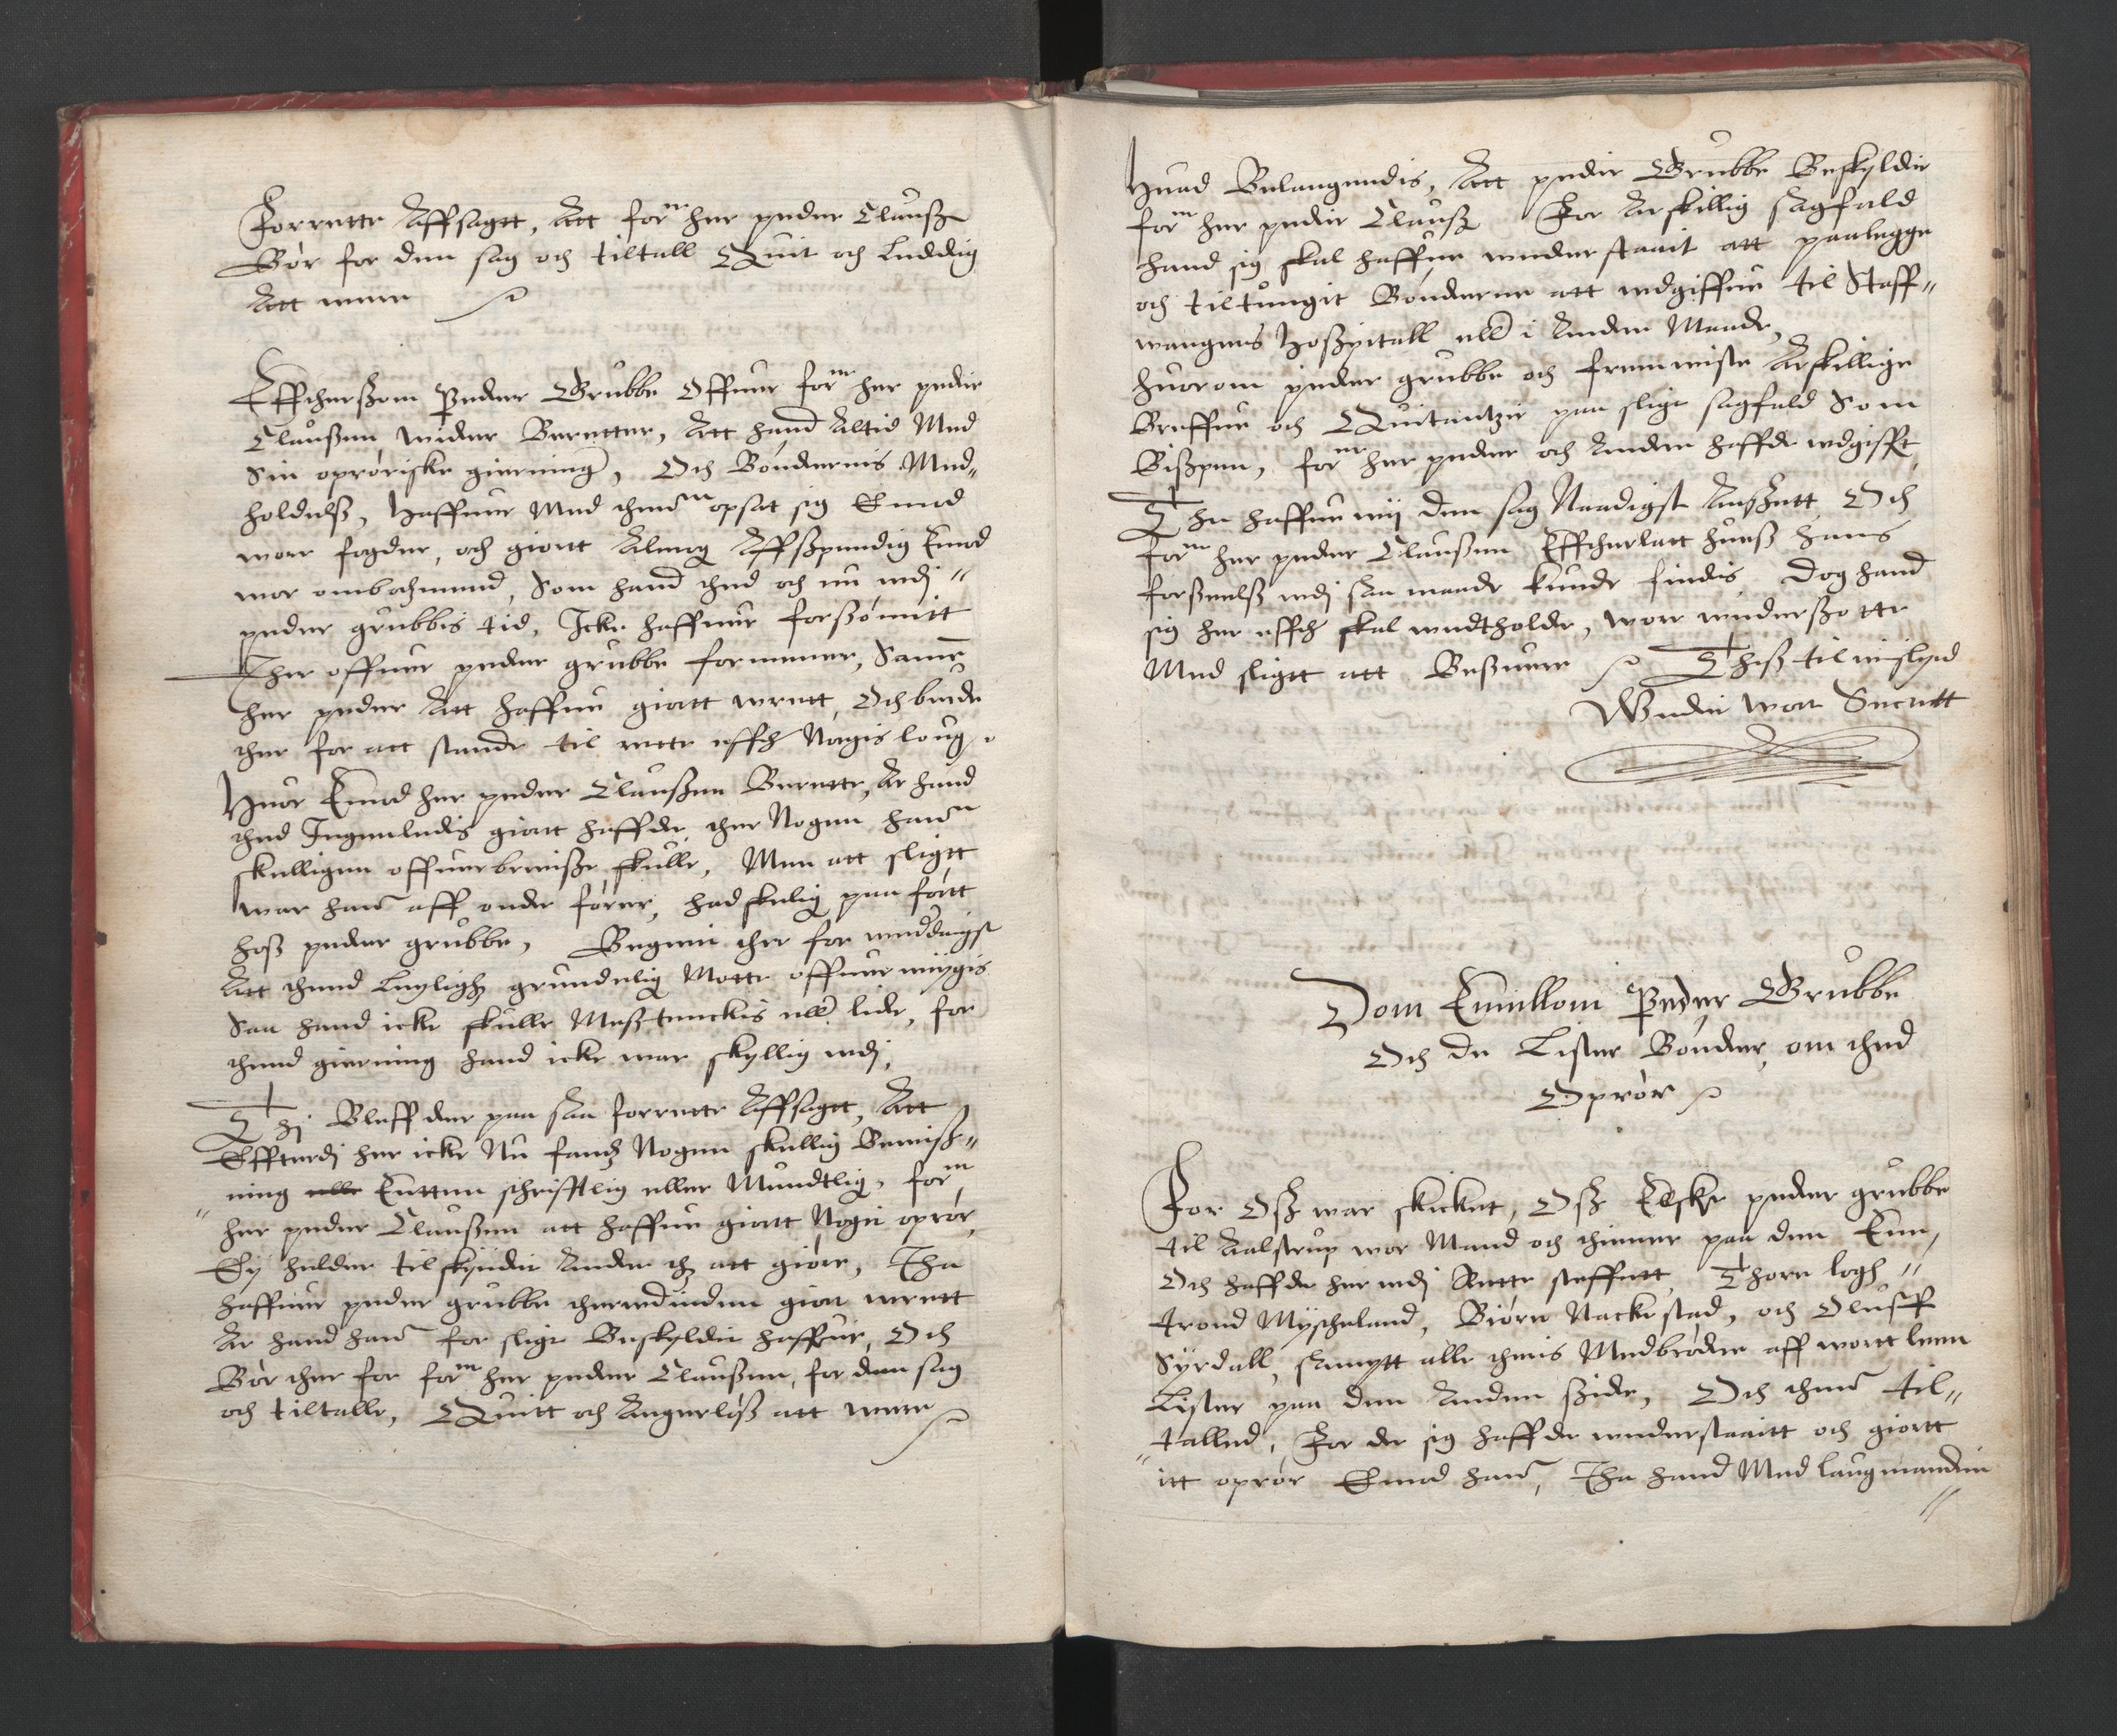 Forrette Affsagtt, Att for:ne her peder Clausz
Bør for den sag och tiltall Quit och Ledidig
Att were
Effthersom Peder Grubbe Offuer for:ne her peder
Claussen widere Beretter, Att hand Altid Med
Sin oprøriske gierning, Och Bøndernis Med-
holdelsz, Haffuer Med thennom opsat sig Emod
wore fogder, och giortt Almog Affspendig Emod
wor ombochmend, Som hand thed och nu udj
peder grubbis tid, Icke haffuer forsømitt
Ther offuer peder grubbe formener, Samme
her peder Att haffue giortt urett, Och burde
ther for att stande til rette effther Norgis loug
Huor Emod her peder Claussen Berette, At hand
thed Ingenledis giortt haffde, ther Nogen hannom
skelligen offuerbeuisze skulle, Men att sligtt
war hannom aff onde førere, hadskelig paa førtt
hosz peder grubbe, Begerit ther for
Att thend Leylighed grundelig Motte offuerueygis
Saa hand icke skulle Mesztenckis eller lide, for
thend gierning hand icke war skyllig udj,
Thj Bleff der paa saa forrette Affsagtt, Att
Effterdj her icke Nu fandtz Nogen skellig Beuisz-
ning elle Enttenn schrifftlig eller Mundtlig, for:ne
her peder Claussen att haffue giortt Noget oprør,
Ey heller tilskyndit Andere thz att giøre, Tha
haffuer peder grubbe therudinden giort urett
At hand hannom for sligt Beskyldet haffuer, Och
Bør ther for for:ne her peder Claussen, for den sag
och tiltalle, Quitt och Angerløsz att were
Huad Belangendis, Att peder Grubbe Beskylder
for:ne her peder Clausz For Atskillig sagfald
hand sig skal haffue understaait att paalegge
och tiltungit Bønderne att udgiffue til Staff-
wangers Hospitall eller i Anden Maade,
huorom peder grubbe och fremuiste Atskillige
Breffue och Quitantzer paa sligt sagfald Som
Bispen, for:ne her peder och Andere haffde udgifft
Tha haffue wij den sag Naadigst Anseett, Och
for:ne her peder Claussen Effterlatt huesz hans
forseelsz udj saa maade kunde findis, Dog hand
sig her effther skal undtholde, wore undersotte
Med sligtt att Besuere Thesz til uislyed
Under wortt Secrett
Dom Emellom Peder Grubbe
Och de Lister Bønder, om thed
Oprør
For Osz war skicket, Osz Elske peder grubbe
til Aalstrup wor Mand och thiener paa den Ene,
Och haffde her udj Rette steffnett, Thore logh
trond Myscheland, Biørn Nackestad, och Oluff
Syrdall, sampt alle theris Medbrødre aff wortt leen
Lister paa den Anden side, Och thennom til-
talled, For de sig haffde understaaitt och giortt
itt oprør Emod hannom, Tha hand Med laugmanden